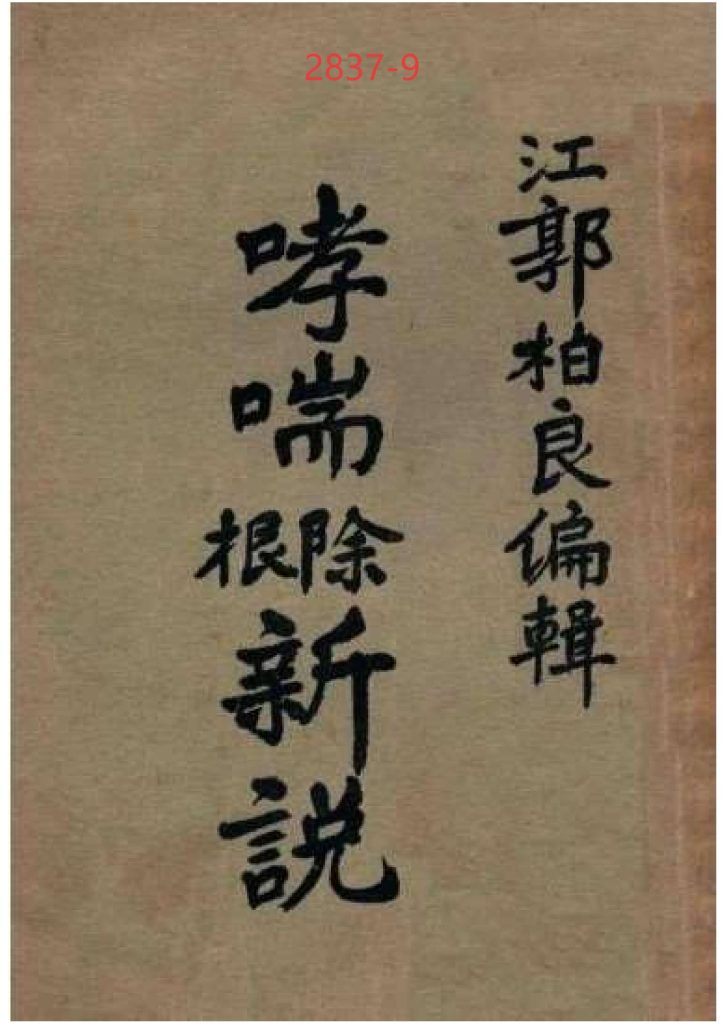 2837-9
江郭柏良偏輯
哮喘除根新説